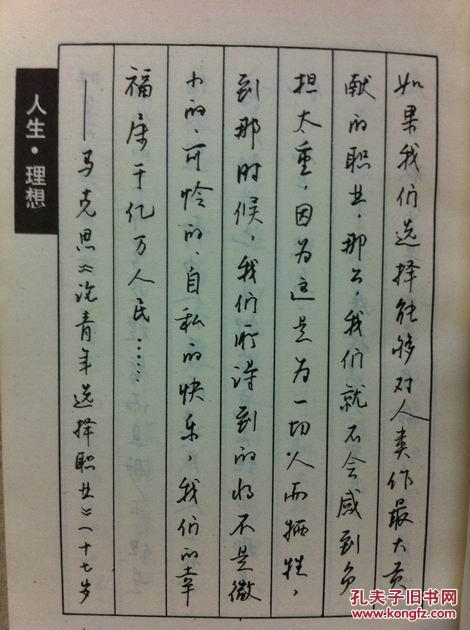 如果我们选择能够对人类作最大贡
献的职业，那么，我们就不会感到负
担太重，因为这是为一切人而牺牲，
到那时候，我们所得到的将不是微
小的、可怜的、自私的快乐，我们的幸
福属于亿万人民……
——马克思《论青年选择职业》（十七岁
人生·理想
孔夫子旧书网